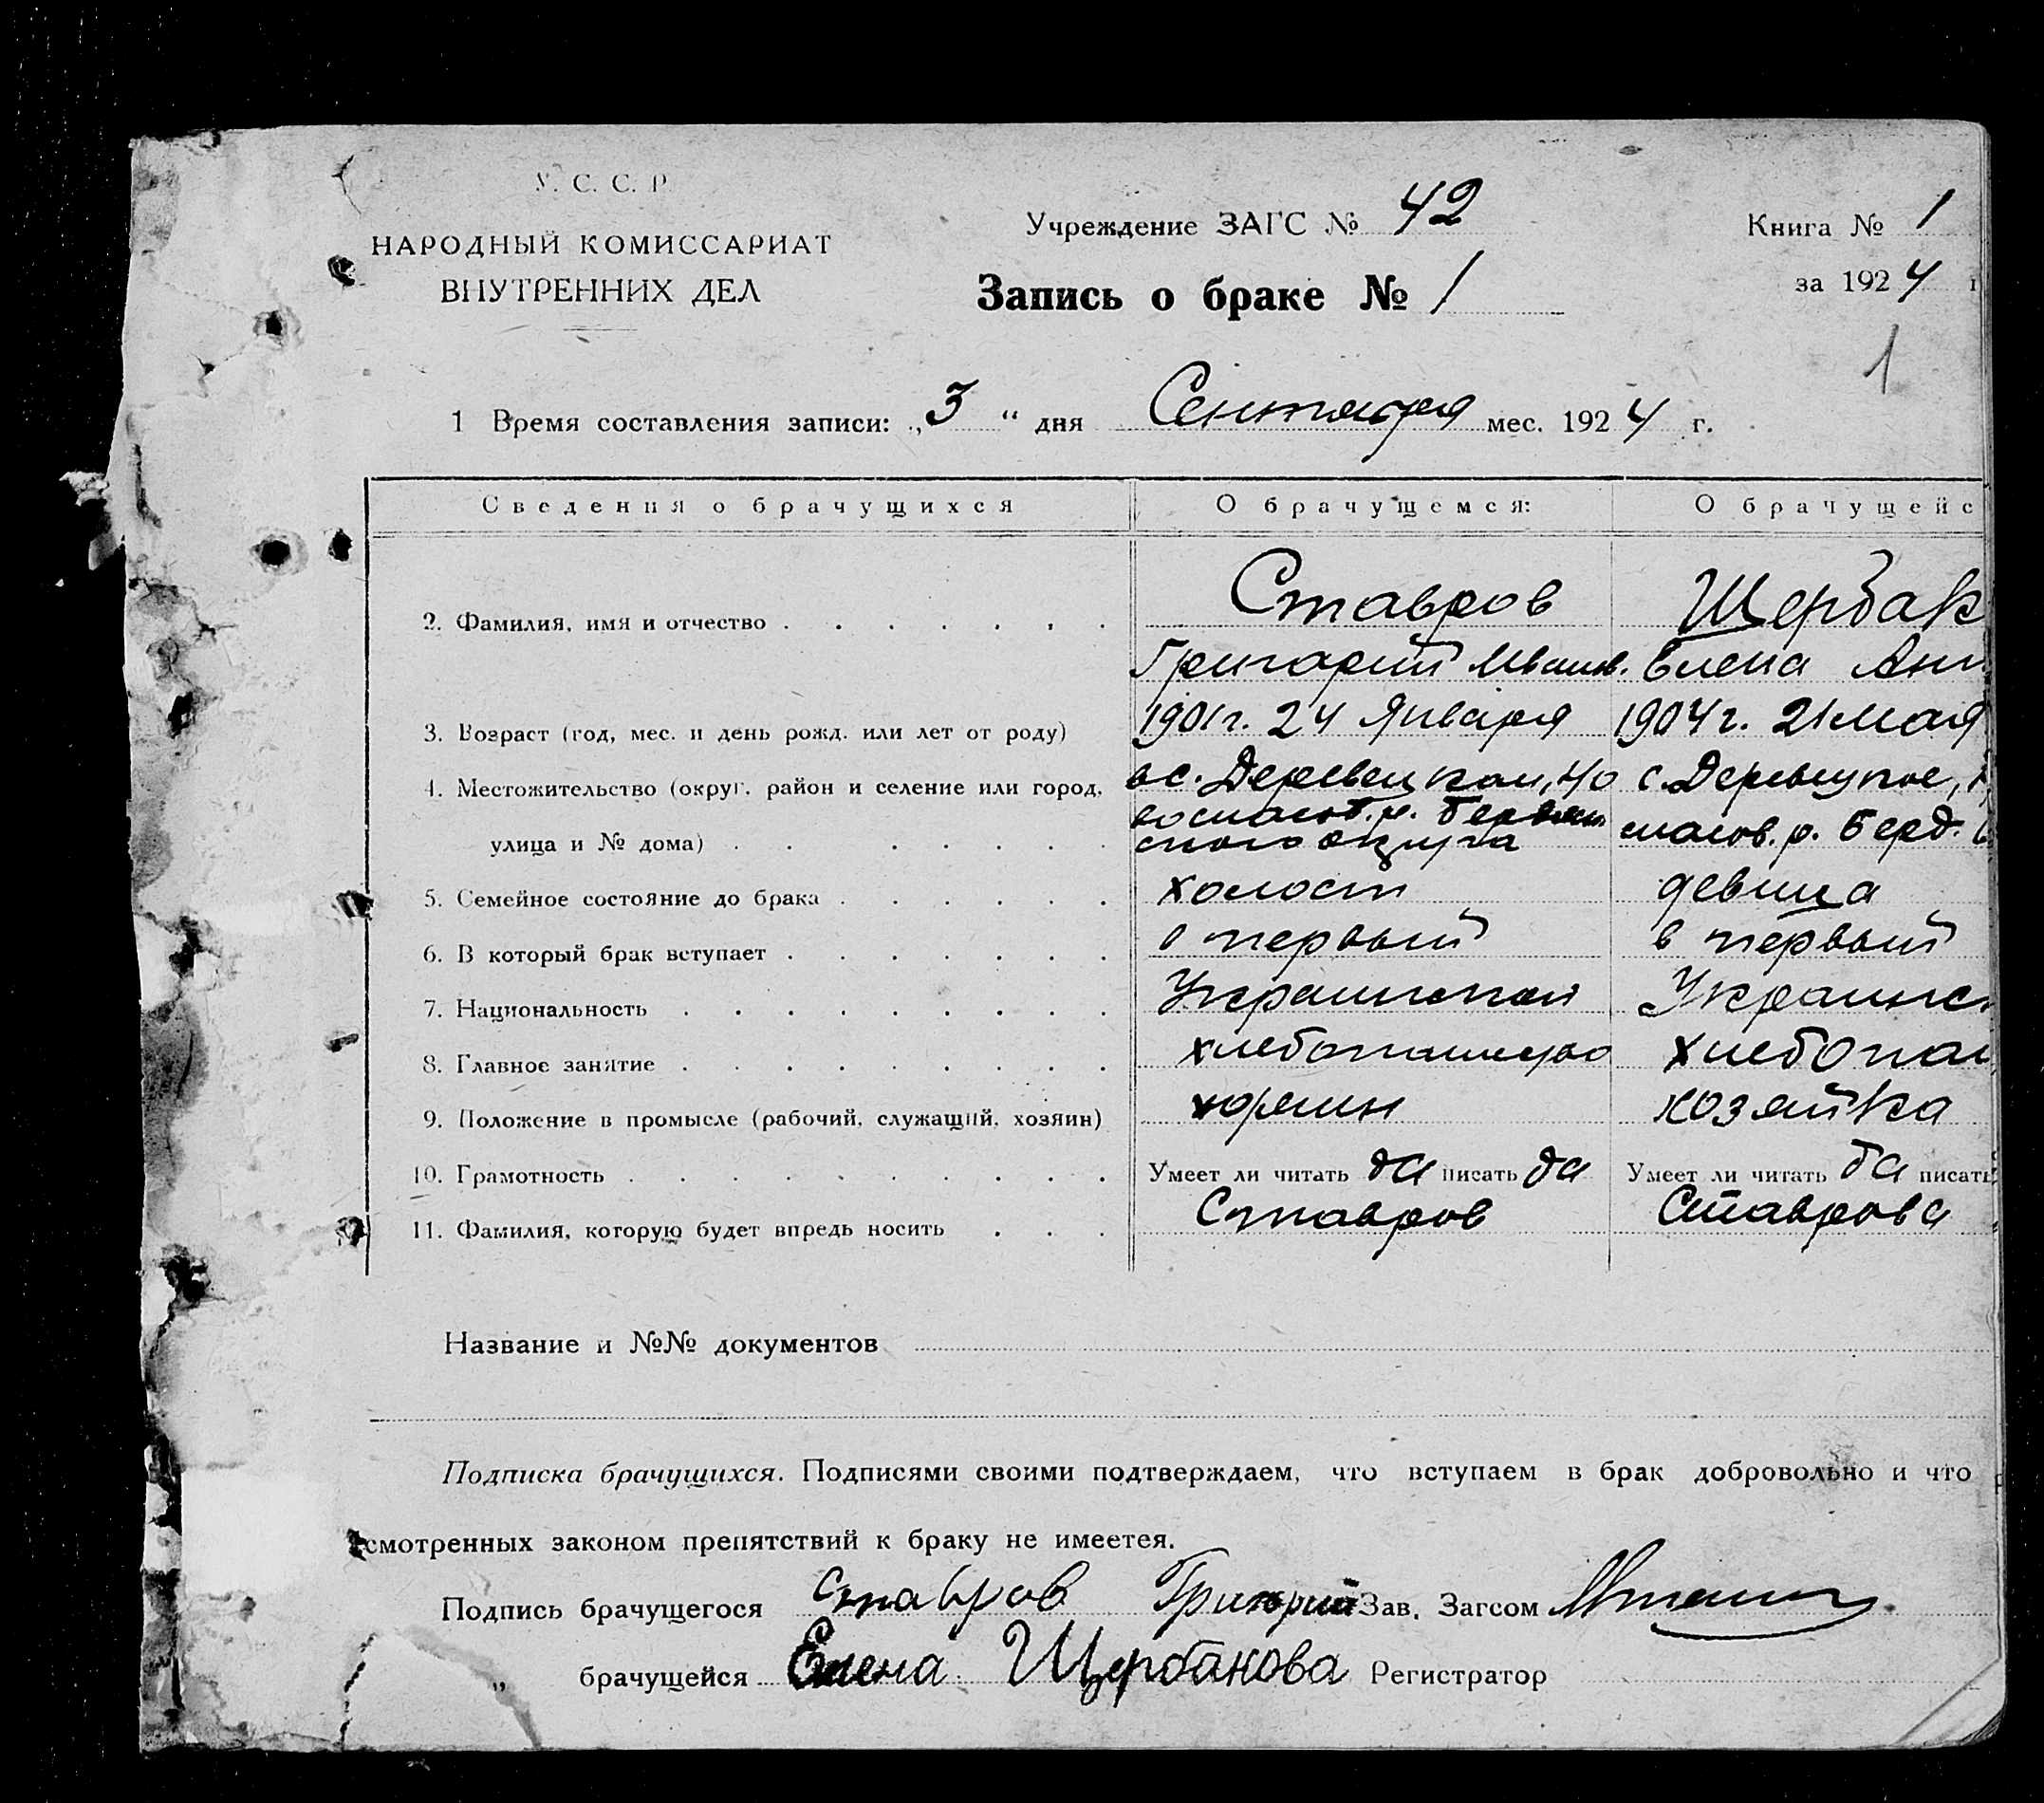 У. С. С. Р
НАРОДНЫЙ КОМИССАРИАТ
ВНУТРЕННИХ ДЕЛ
Учреждение ЗАГС № 42
Книга № 1
за 1924 г
Запись о браке № 1
1
1 Время составления записи: „3 “ дня Сентября мес. 1924 г.
Сведения о брачущихся О брачущемся: О брачущейс
2. Фамилия, имя и отчество Ставров Щербак
Григорий Иванов. Елена Ан
3. Возраст (год, мес. и день рожд. или лет от роду) 1901 г. 24 Января 1904 г. 21 Мая
4. Местожительство (округ, район и селение или город, с. с. Деревецкое,
улица и № дома) р. Берд.
округа
5. Семейное состояние до брака холост девица
6. В который брак вступает в первый в первый
7. Национальность Украинской Украинс
8. Главное занятие хлебопашество хлебопа
9. Положение в промысле (рабочий, служащий, хозяин) хозяин хозяйка
10. Грамотность Умеет ли читать да писать да Умеет ли читать да писать
11. Фамилия, которую будет впредь носить Ставров Ставрова
Название и №№ документов
Подписка брачущихся. Подписями своими подтверждаем, что вступаем в брак добровольно и что
смотренных законом препятствий к браку не имеется.
Подпись брачущегося Ставров Григорий Зав. Загсом
„ брачущейся Елена Щербакова Регистратор